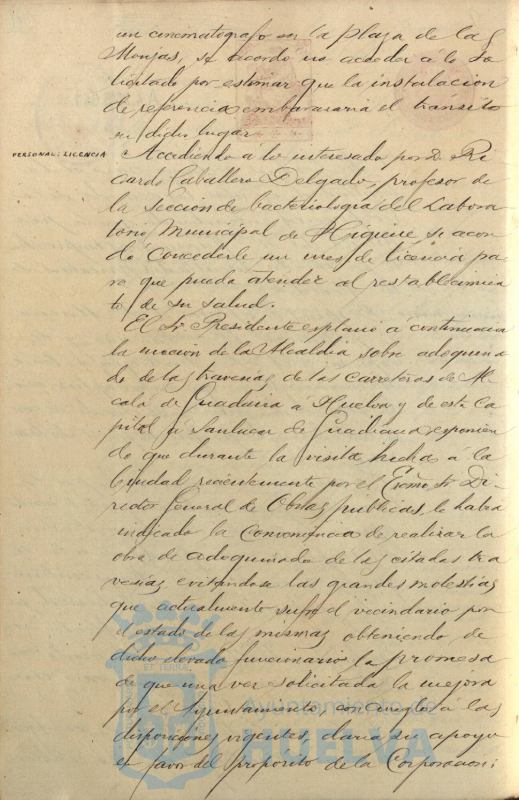 un cinematografo en la plaza de las
Monjas, se acordó no acceder á lo so
licitado por estimar que la instalacion
de referencia embarazaria el transito
en dicho lugar.
PERSONAL: LICENCIA
Accediendo á lo interesado por D. Ri
cardo Caballero Delgado, profesor de
la Sección de bacteriologia del Labora
torio Municipal de Higiene se acor
dó concederle un mes de licencia pa
ra que pueda atender al restablecimien
to de su salud.
El Sr. Presidente explanó á continuacion
la mocion de la Alcaldia sobre adoquina
do de las travesias de las carreteras de Al
calá de Guadaira á Huelva y de esta Ca
pital á Sanlucar de Guadiana exponien
do que durante la visita hecha á la
Ciudad recientemente por el Excmo. Sr. Di
rector General de Obras públicas, le habia
indicado la conveniencia de realizar la
obra de adoquinado de las citadas tra
vesias evitandose las grandes molestias
que actualmente sufre el vecindario por
el estado de las mismas obteniendo de
dicho elevado funcionario la promesa
de que una vez solicitada la mejora
por el Ayuntamiento, con arreglo a las
disposiciones vigentes, daria su apoyo
en favor del propósito de la Corporacion;
HUELVA